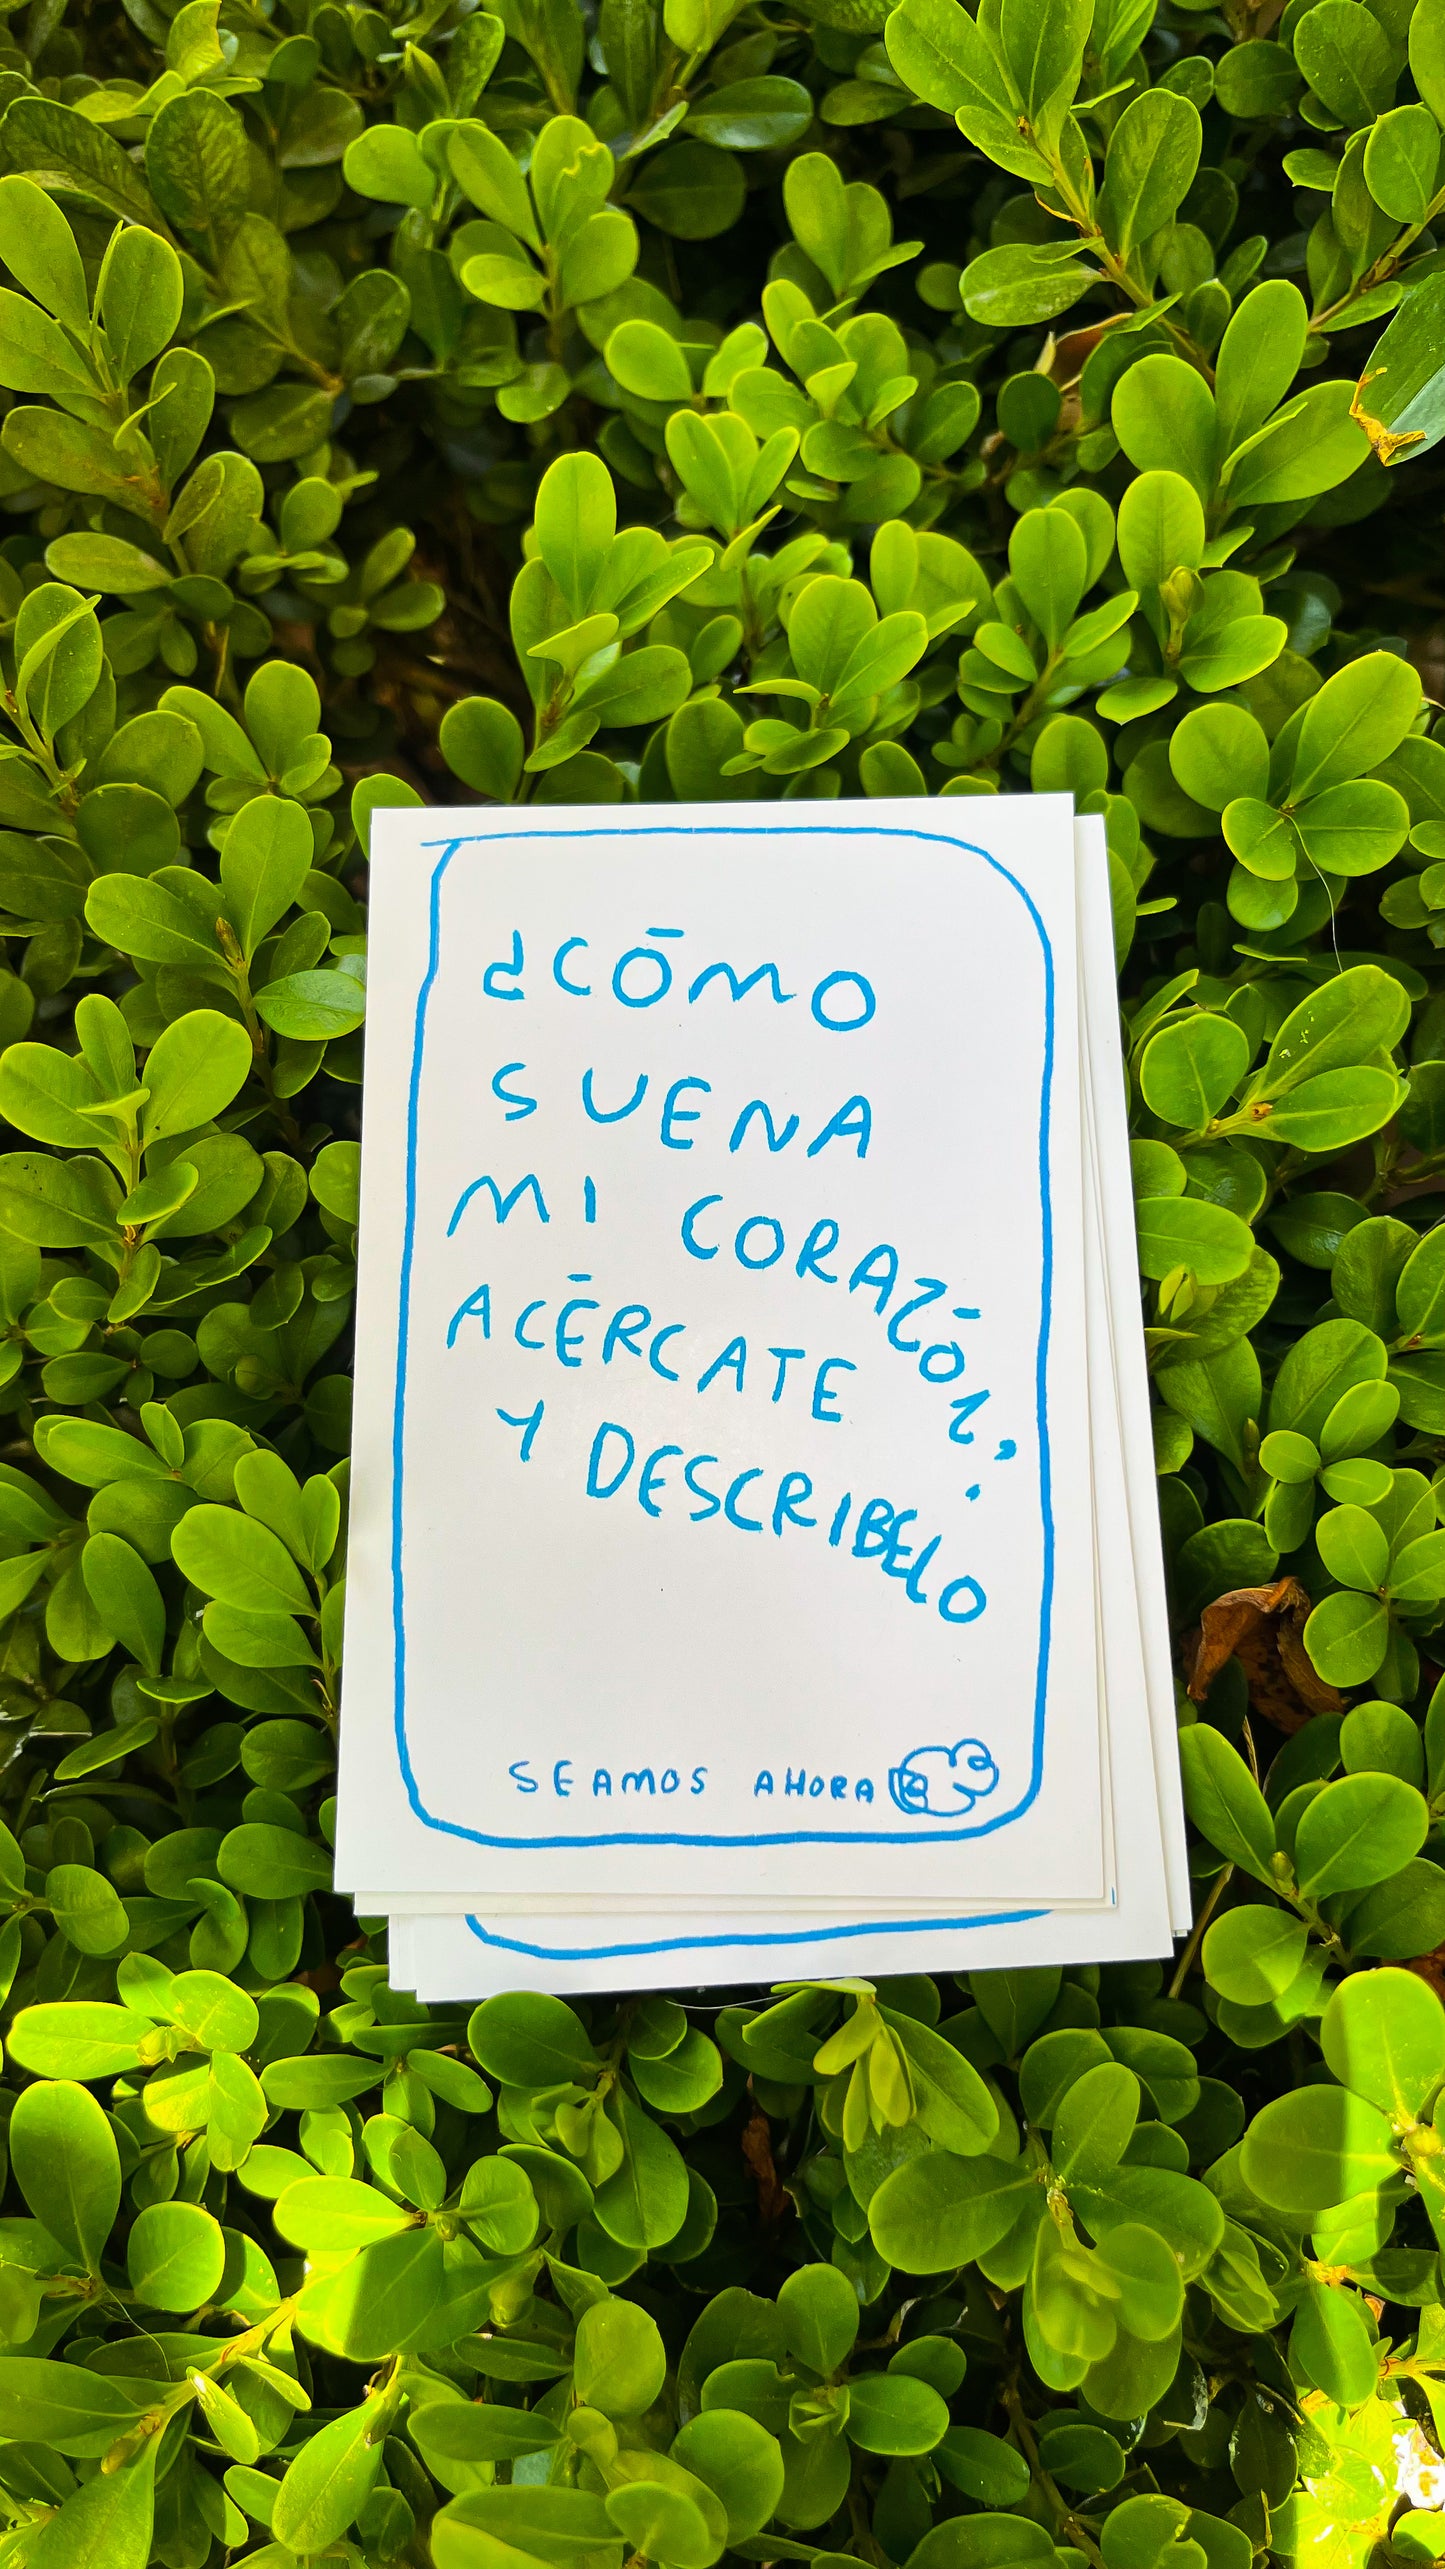 ¿CÓMO
SUENA
MI CORAZÓN?
ACÉRCATE
Y DESCRIBELO
SEAMOS AHORA